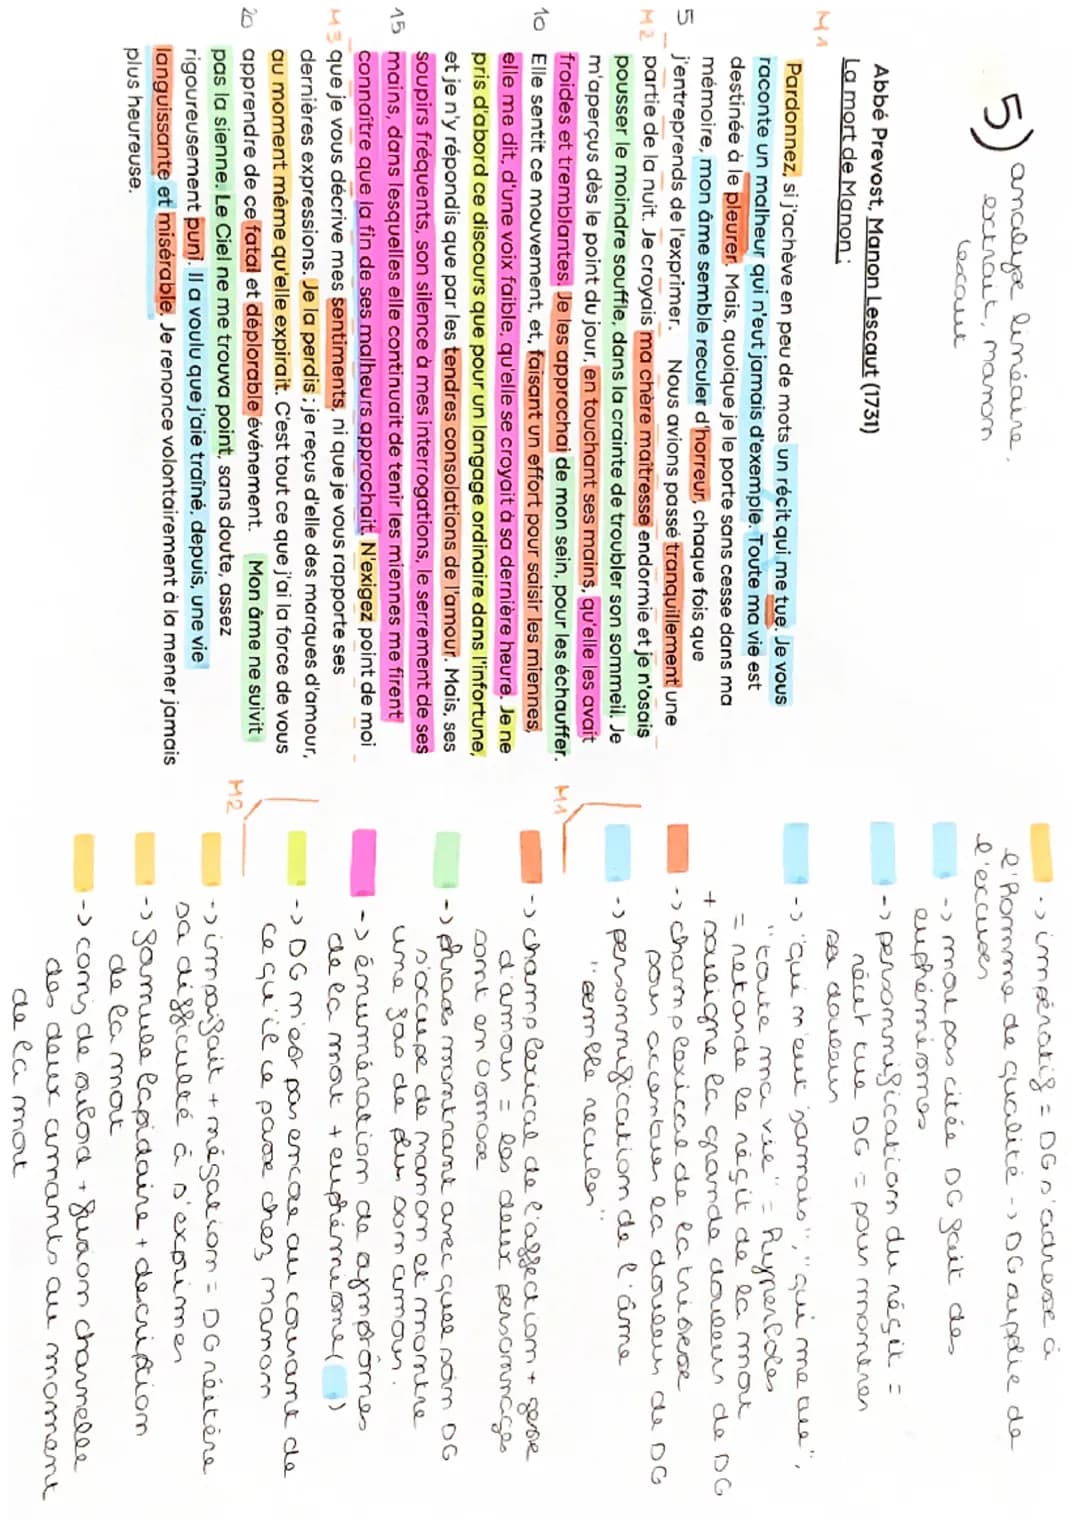 5) analyse linéaire,
extrait, manon
lescaut
Abbé Prevost, Manon Lescaut (1731)
La mort de Manon :
M1
Pardonnez, si j'achève en peu de mots un récit qui me tue. Je vous
raconte un malheur qui n'eut jamais d'exemple. Toute ma vie est
destinée à le pleurer. Mais, quoique je le porte sans cesse dans ma
mémoire, mon âme semble reculer d'horreur, chaque fois que
5 j'entreprends de l'exprimer. Nous avions passé tranquillement une
M2 partie de la nuit. Je croyais ma chère maîtresse endormie et je n'osais
pousser le moindre souffle, dans la crainte de troubler son sommeil. Je
m'aperçus dès le point du jour, en touchant ses mains, qu'elle les avait
froides et tremblantes. Je les approchai de mon sein, pour les échauffer.
10 Elle sentit ce mouvement, et, faisant un effort pour saisir les miennes,
elle me dit, d'une voix faible, qu'elle se croyait à sa dernière heure. Je ne
pris d'abord ce discours que pour un langage ordinaire dans l'infortune,
et je n'y répondis que par les tendres consolations de l'amour. Mais, ses
soupirs fréquents, son silence à mes interrogations, le serrement de ses
15 mains, dans lesquelles elle continuait de tenir les miennes me firent
connaître que la fin de ses malheurs approchait. N'exigez point de moi
M3 que je vous décrive mes sentiments, ni que je vous rapporte ses
dernières expressions. Je la perdis ; je reçus d'elle des marques d'amour,
au moment même qu'elle expirait. C'est tout ce que j'ai la force de vous
20 apprendre de ce fatal et déplorable événement. Mon âme ne suivit
pas la sienne. Le Ciel ne me trouva point, sans doute, assez
rigoureusement puni. Il a voulu que j'aie traîné, depuis, une vie
languissante et misérable. Je renonce volontairement à la mener jamais
plus heureuse.
-> impératif = DG s'adresse à
l'Homme de qualité -> DG supplie de
l'excuser
-> mot pas citée DG fait des
euphémismes
-> personnification du récit =
récit tue DG = pour montrer
sa douleur
-> "qui n'eut jamais", "qui me tue",
"toute ma vie" = hyperboles
= retarde le récit de la mort
+ souligne la grande douleur de DG
-> champ lexical de la tristesse
pour accentuer la douleur de DG
-> personnification de l'âme
"semble reculer"
M1
-> champ lexical de l'affection + geste
d'amour = les deux personnages
sont en osmose
-> phrases montrant avec quel soin DG
s'ocupe de manon et montre
une fois de plus son amour.
-> énumération de symptômes
de la mort + euphémisme ( )
-> DG n'est pas encore au courant de
ce qu'il ce passe chez manon
M2
-> imparfait + négation = DG réitère
sa difficulté à s'exprimer
-> formule lapidaire + description
de la mort
-> fusion charnelle
des deux amants au moment
de la mort